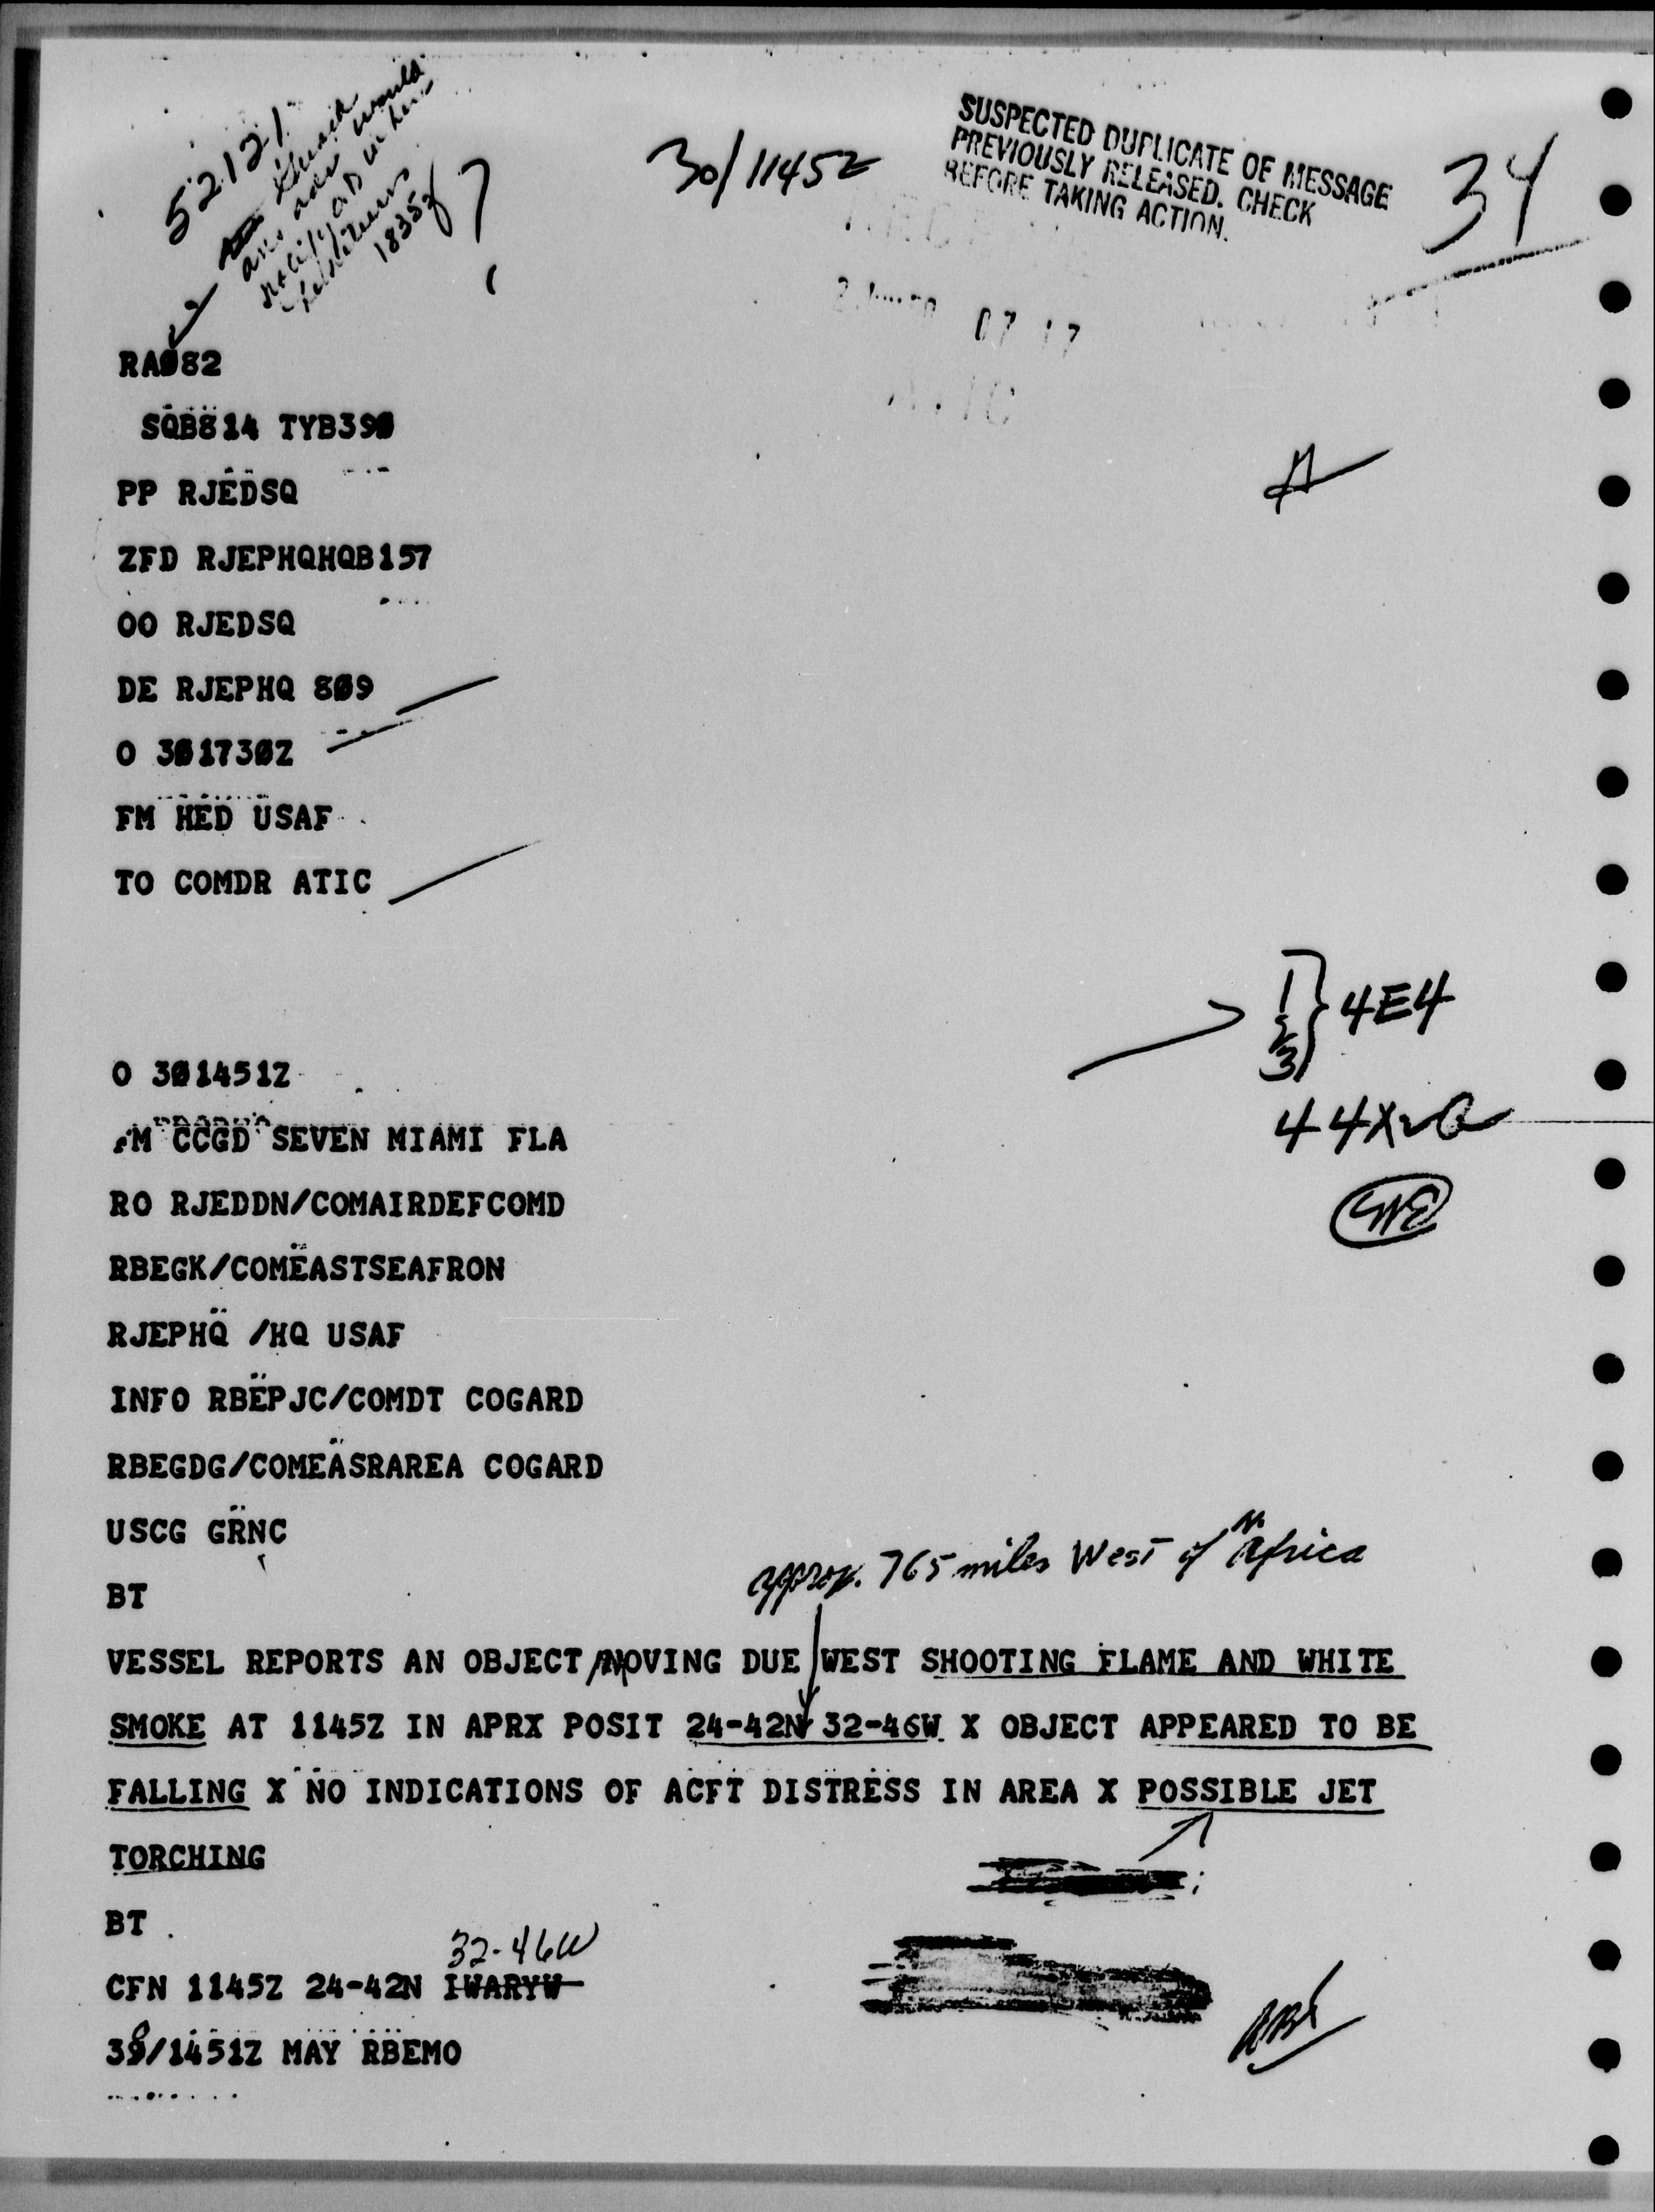 52121
30/1145Z
SUSPECTED DUPLICATE OF MESSAGE
PREVIOUSLY RELEASED. CHECK
BEFORE TAKING ACTION.
34
1835Z
?
07 17
RAØ82
SQB814 TYB39Ø
PP RJEDSQ
ZFD RJEPHQHQB157
OO RJEDSQ
DE RJEPHQ 8Ø9
O 3Ø173ØZ
FM HED USAF
TO COMDR ATIC
1
2
3 } 4E4
O 3Ø1451Z
FM CCGD SEVEN MIAMI FLA
RO RJEDDN/COMAIRDEFCOMD
RBEGK/COMEASTSEAFRON
RJEPHQ /HQ USAF
INFO RBEPJC/COMDT COGARD
RBEGDG/COMEASRAREA COGARD
USCG GRNC
approx. 765 miles West of N. Africa
BT
VESSEL REPORTS AN OBJECT MOVING DUE WEST SHOOTING FLAME AND WHITE
SMOKE AT 1145Z IN APRX POSIT 24-42N 32-46W X OBJECT APPEARED TO BE
FALLING X NO INDICATIONS OF ACFT DISTRESS IN AREA X POSSIBLE JET
TORCHING
BT
32-46W
CFN 1145Z 24-42N IWARYW
30/1451Z MAY RBEMO